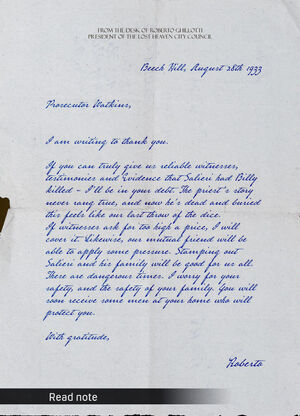 FROM THE DESK OF ROBERTO GHILLOTTI
PRESIDENT OF THE LOST HEAVEN CITY COUNCIL
Beech Hill, August 28th 1933
Prosecutor Watkins,
I am writing to thank you.
If you can truly give us reliable witnesses,
testimonies and Evidence that Salieri had Billy
killed - I'll be in your debt. The priest's story
never rang true, and now he's dead and buried
this feels like our last throw of the dice.
If witnesses ask for too high a price, I will
cover it. Likewise, our mutual friend will be
able to apply some pressure. Stamping out
Salieri and his family will be good for us all.
There are dangerous times. I worry for your
safety, and the safety of your family. You will
soon receive some men at your home who will
protect you.
With gratitude,
Roberto
Read note